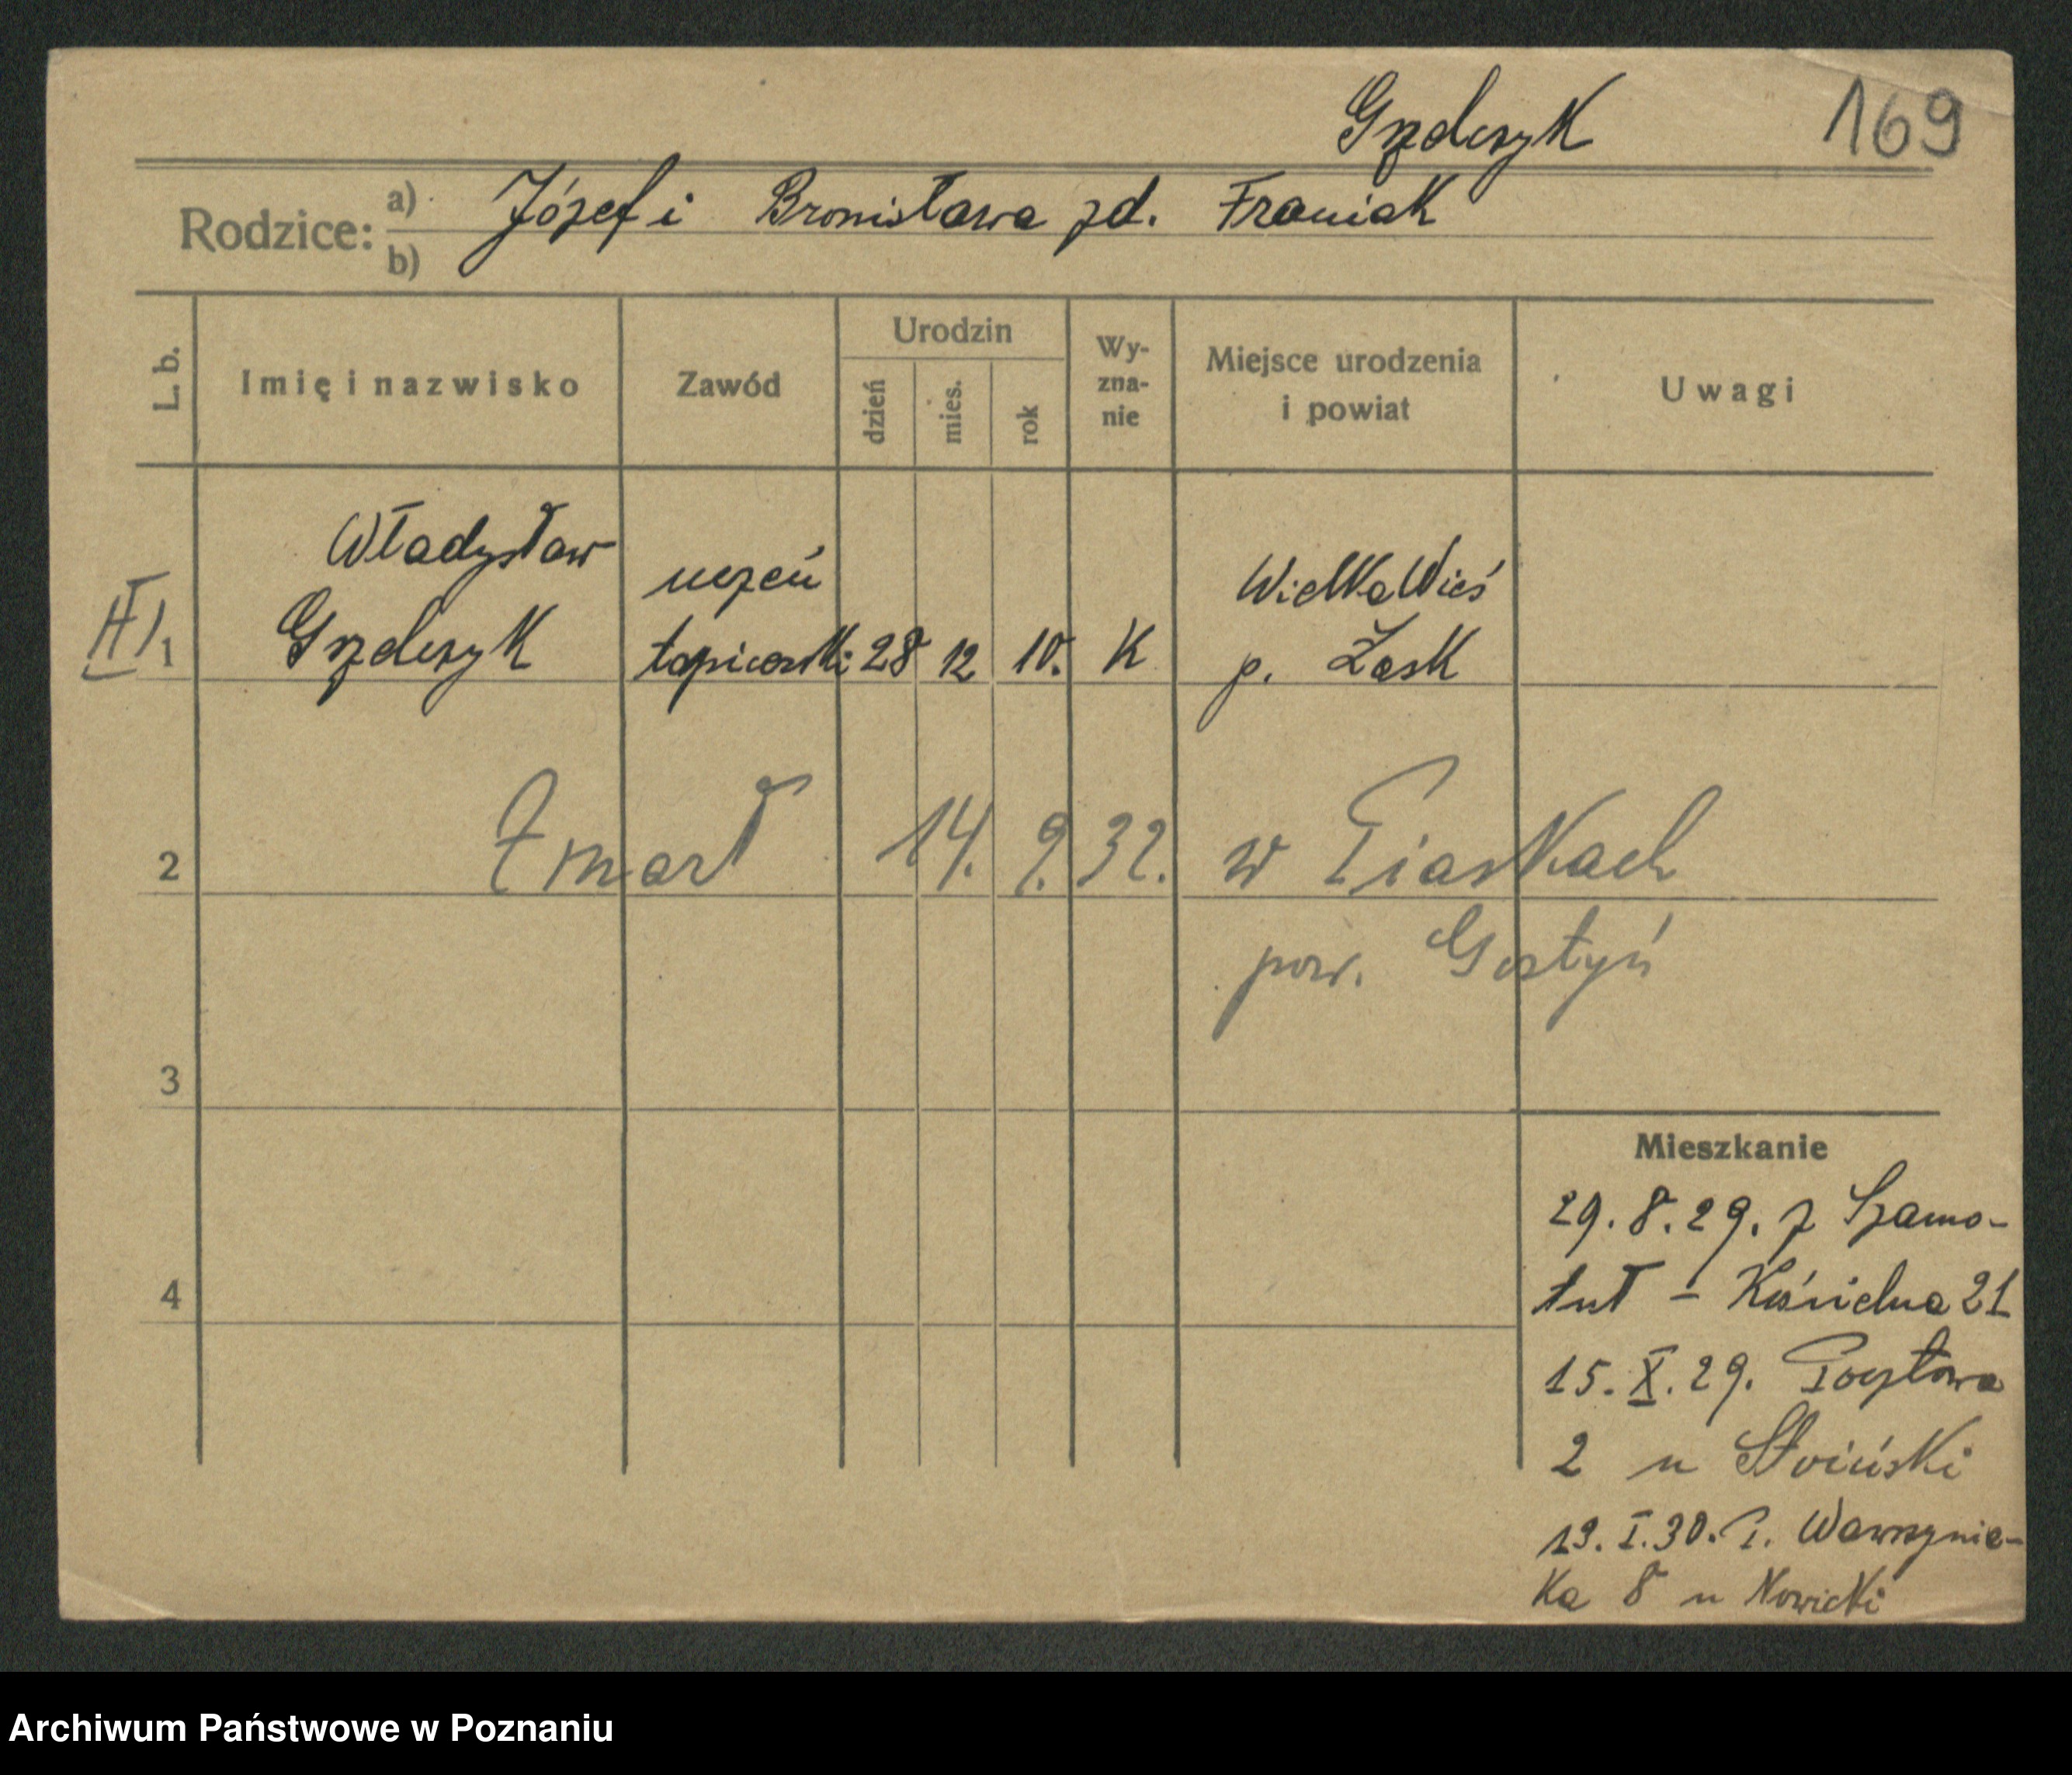 Grzelczyk 169
Rodzice: a) Józef i Bronisława zd. Franiak
b)
L. b. Imię i nazwisko Zawód Urodzin dzień mies. rok Wy-zna-nie Miejsce urodzenia i powiat Uwagi
Władysław uczeń Wielka Wieś
II/1 Grzelczyk tapicerski 28 12 10. K p. Łask
2 Zmarł 14. 9. 32. w Piaskach
pow. Gostyń
3
Mieszkanie
29.8.29. z Szamo-
4 tuł - Kościelna 21
15.X.29. Pocztowa
2 u Słoiński
19.I.30. P. Wawrzynia-
ka 8 u Nowicki
Archiwum Państwowe w Poznaniu